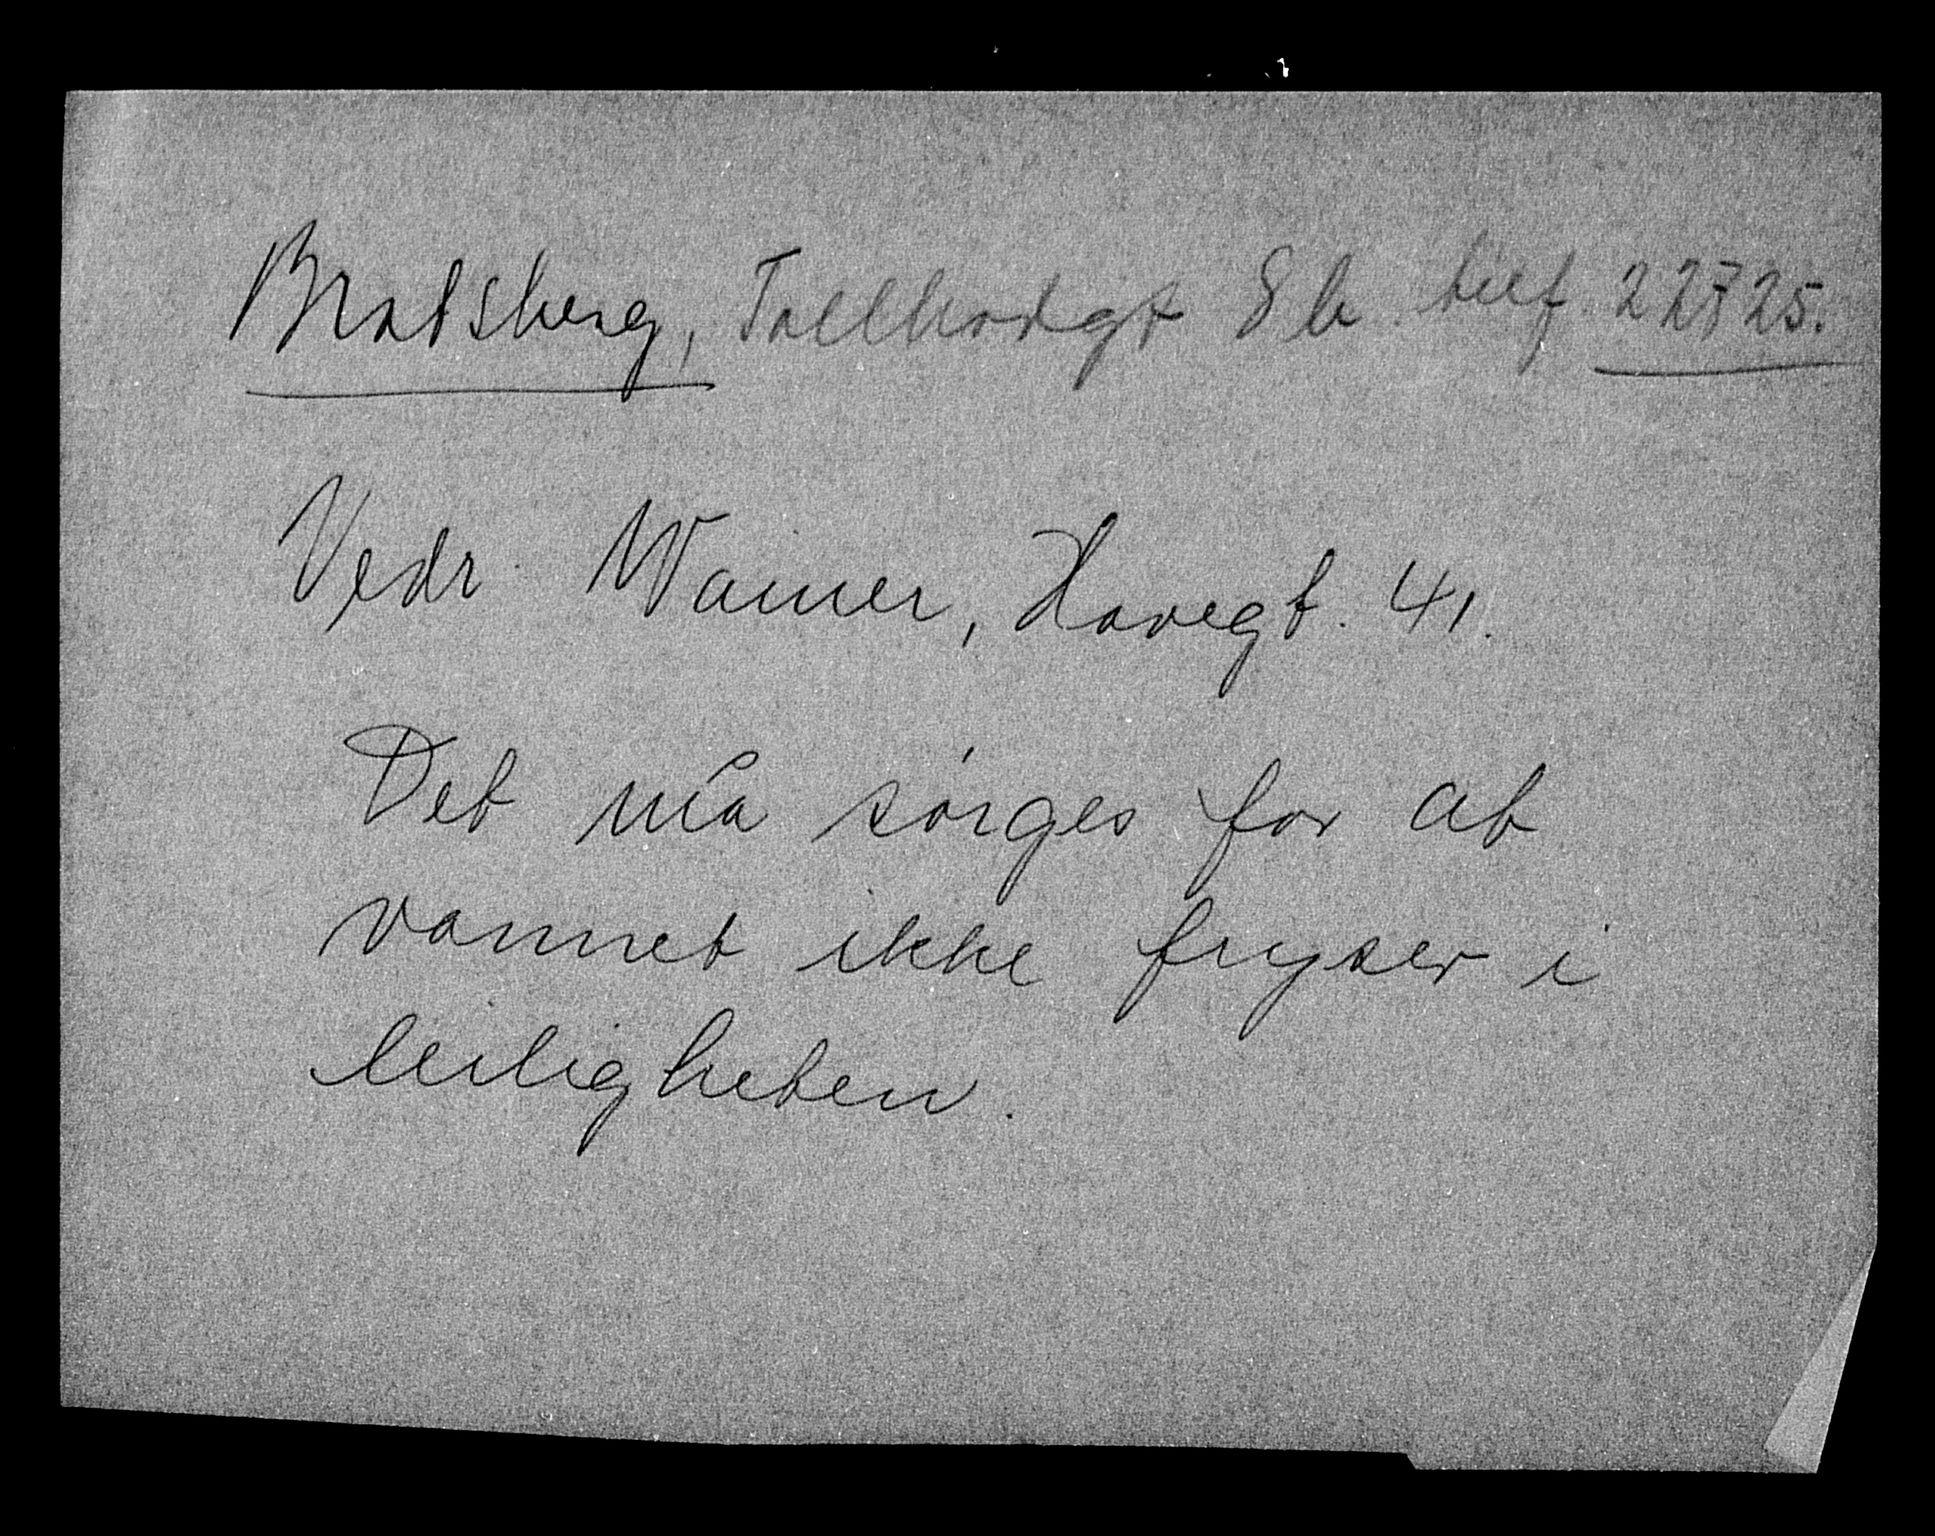 Bratsberg, Tollbodgt 8 b. telf. 22725.
Vedr. Wainer, Havegt. 41.
Det må sørges for at
vannet ikke fryser i
leiligheten.